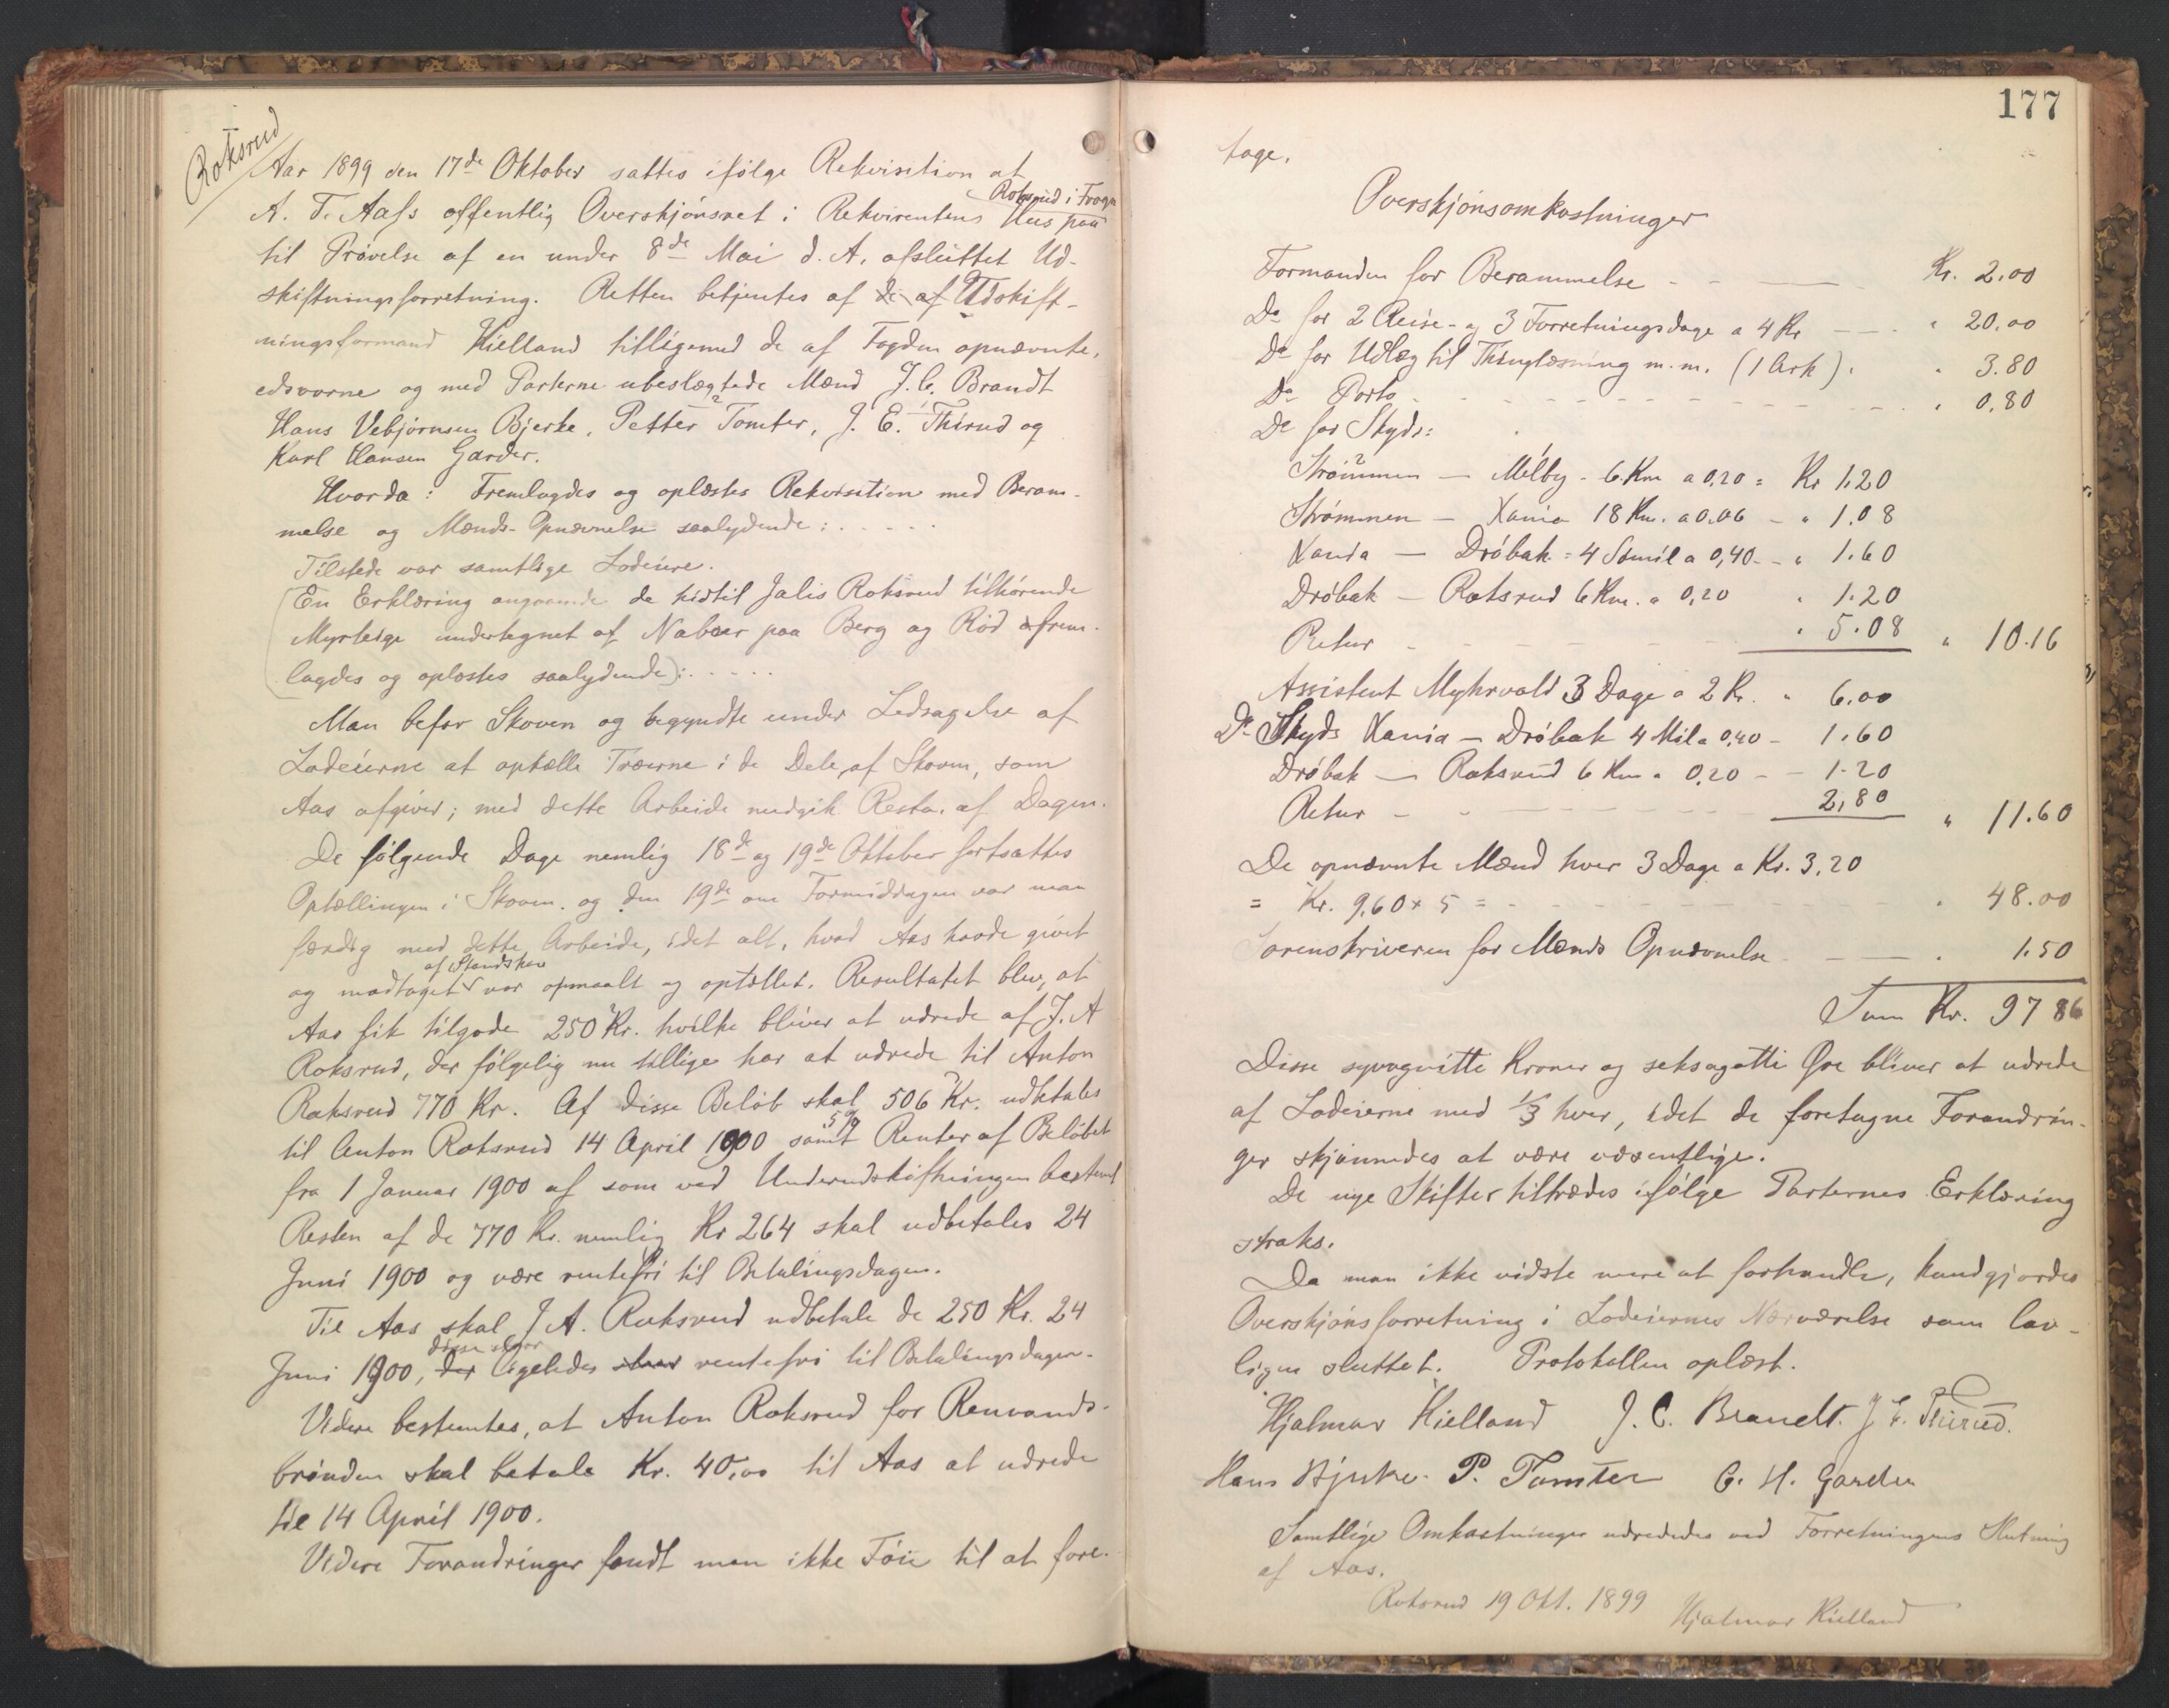 Roksrud
Aar 1899 den 17de Oktober sattes ifølge Rekvisition at
A. T. Aass offentlig Overskjønsret i Rekvirentens Hus paa Roksrud i Frogn
til Prøvelse af en under 8de Mai d. A. afsluttet Ud-
skiftningsforretning. Retten betjentes af de af Udskift-
ningsformand Kielland tilligemed de af Fogden opnævnte,
edsvorne og med Parterne ubeslægtede Mænd J. C. Brandt
Hans Vebjørnsen Bjerke, Petter Tomter, J. E. Thirud og
Karl Hansen Garder.
Hvorda: Fremlagdes og oplæstes Rekvisition med Beram-
melse og Mænds-Opnævnelse saalydende: . . . . .
Tilstede var samtlige Lodeiere.
(En Erklæring angaaende de hidtil Jalis Roksrud tilhørende
Myrteige undertegnet af Naboer paa Berg og Rød frem-
lagdes og oplæstes saalydende): . . . . .
Man befor Skoven og begyndte under Ledsagelse af
Lodeierne at optælle Træerne i de Dele af Skoven, som
Aas afgiver; med dette Arbeide medgik Resten af Dagen.
De følgende Dage nemlig 18de og 19de Oktober fortsattes
Optællingen i Skoven. og den 19de om Formiddagen var man
færdig med dette Arbeide, idet alt, hvad Aas havde givet
og modtaget af Skov var opmaalt og optællet. Resultatet blev, at
Aas fik tilgode 250 Kr. hvilke bliver at udrede af J. A
Roksrud, der følgelig nu tillige har at udrede til Anton
Roksrud 770 Kr. Af disse Beløb skal 506 Kr. udbetales
til Anton Roksrud 14 April 1900 samt 5 % Renter af Beløbet
fra 1 Januar 1900 af som ved Underudskiftningen bestemt
Resten af de 770 Kr. nemlig Kr 264 skal udbetales 24
Juni 1900 og være rentefri til Betalingsdagen.
Til Aas skal J A. Roksrud udbetale de 250 Kr. 24
Juni 1900, der ligeledes rentefri til Betalingsdagen.
Videre bestemtes, at Anton Roksrud for Renvands-
brønden skal betale Kr. 40,00 til Aas at udrede
til 14 April 1900.
Videre Forandringer fandt man ikke Føie til at fore-
177
tage.
Overskjønsomkostninger
Formanden for Berammelse - - — Kr. 2,00
Do for 2 Reise- og 3 Forretningsdage a 4 Kr — - . " 20,00
Do for Udlæg til Thinglæsning m.m. (1 Ark). " 3.80
Do Porto - - - - - - - " 0,80
Do for Skyds:
Strømmen — Melby - 6 Km a 0,20 = Kr 1.20
Strømmen — Xania 18 Km. a 0.06 - " 1.08
Xania — Drøbak = 4 Sømil a 0,40 - - " 1.60
Drøbak — Roksrud 6 Km. a 0,20 " 1.20
Retur - - - - - " 5.08 " 10.16
Assistent Myhrvold 3 Dage a 2 Kr. " 6,00
Do Skyds Xania — Drøbak 4 Mil a 0,40 - 1.60
Drøbak — Roksrud 6 Km a 0,20 - - 1.20
Retur - - - - - 2,80 " 11.60
De opnævnte Mænd hver 3 Dage a Kr. 3,20
= Kr. 9,60 x 5 = - - - - - . 48.00
Sorenskriveren for Mænds Opnævnelse - — . 1.50
Sum Kr. 97 86
Disse syvognitti Kroner og seksogotti Øre bliver at udrede
af Lodeierne med 1/3 hver, idet de foretagne Forandrin-
ger skjønnedes at være væsentlige.
De nye Skifter tiltrædes ifølge Parternes Erklæring
straks.
Da man ikke vidste mere at forhandle, kundgjordes
Overskjønsforretning i Lodeiernes Nærværelse som lov-
ligen sluttet. Protokollen oplæst.
Hjalmar Kielland J. C. Brandt. J E. Thirud.
Hans Bjerke. P. Tomter C. H. Garder
Samtlige Omkostninger udrededes ved Forretningens Slutning
af Aas.
Roksrud 19 Okt. 1899 Hjalmar Kielland